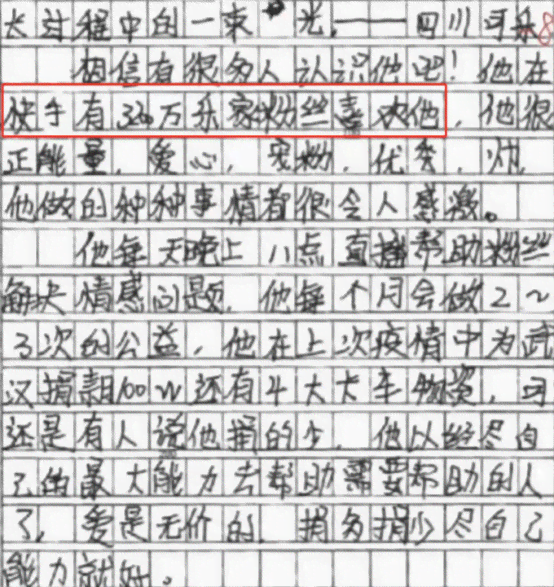 长过程中的一束光,——四川可乐
相信有很多人认识他吧!他在
快手有320万乐家粉丝喜欢他,他很
正能量,爱心,宠粉,优秀,帅,
他做的种种事情都很令人感激。
他每天晚上八点直播帮助粉丝
解决情感问题,他每个月会做2~
3次的公益,他在上次疫情中为武
汉捐款100W还有4大卡车物资,可
还是有人说他捐的少,他以经尽自
己的最大能力去帮助需要帮助的人
了,爱是无价的,捐多捐少尽自己
能力就好。